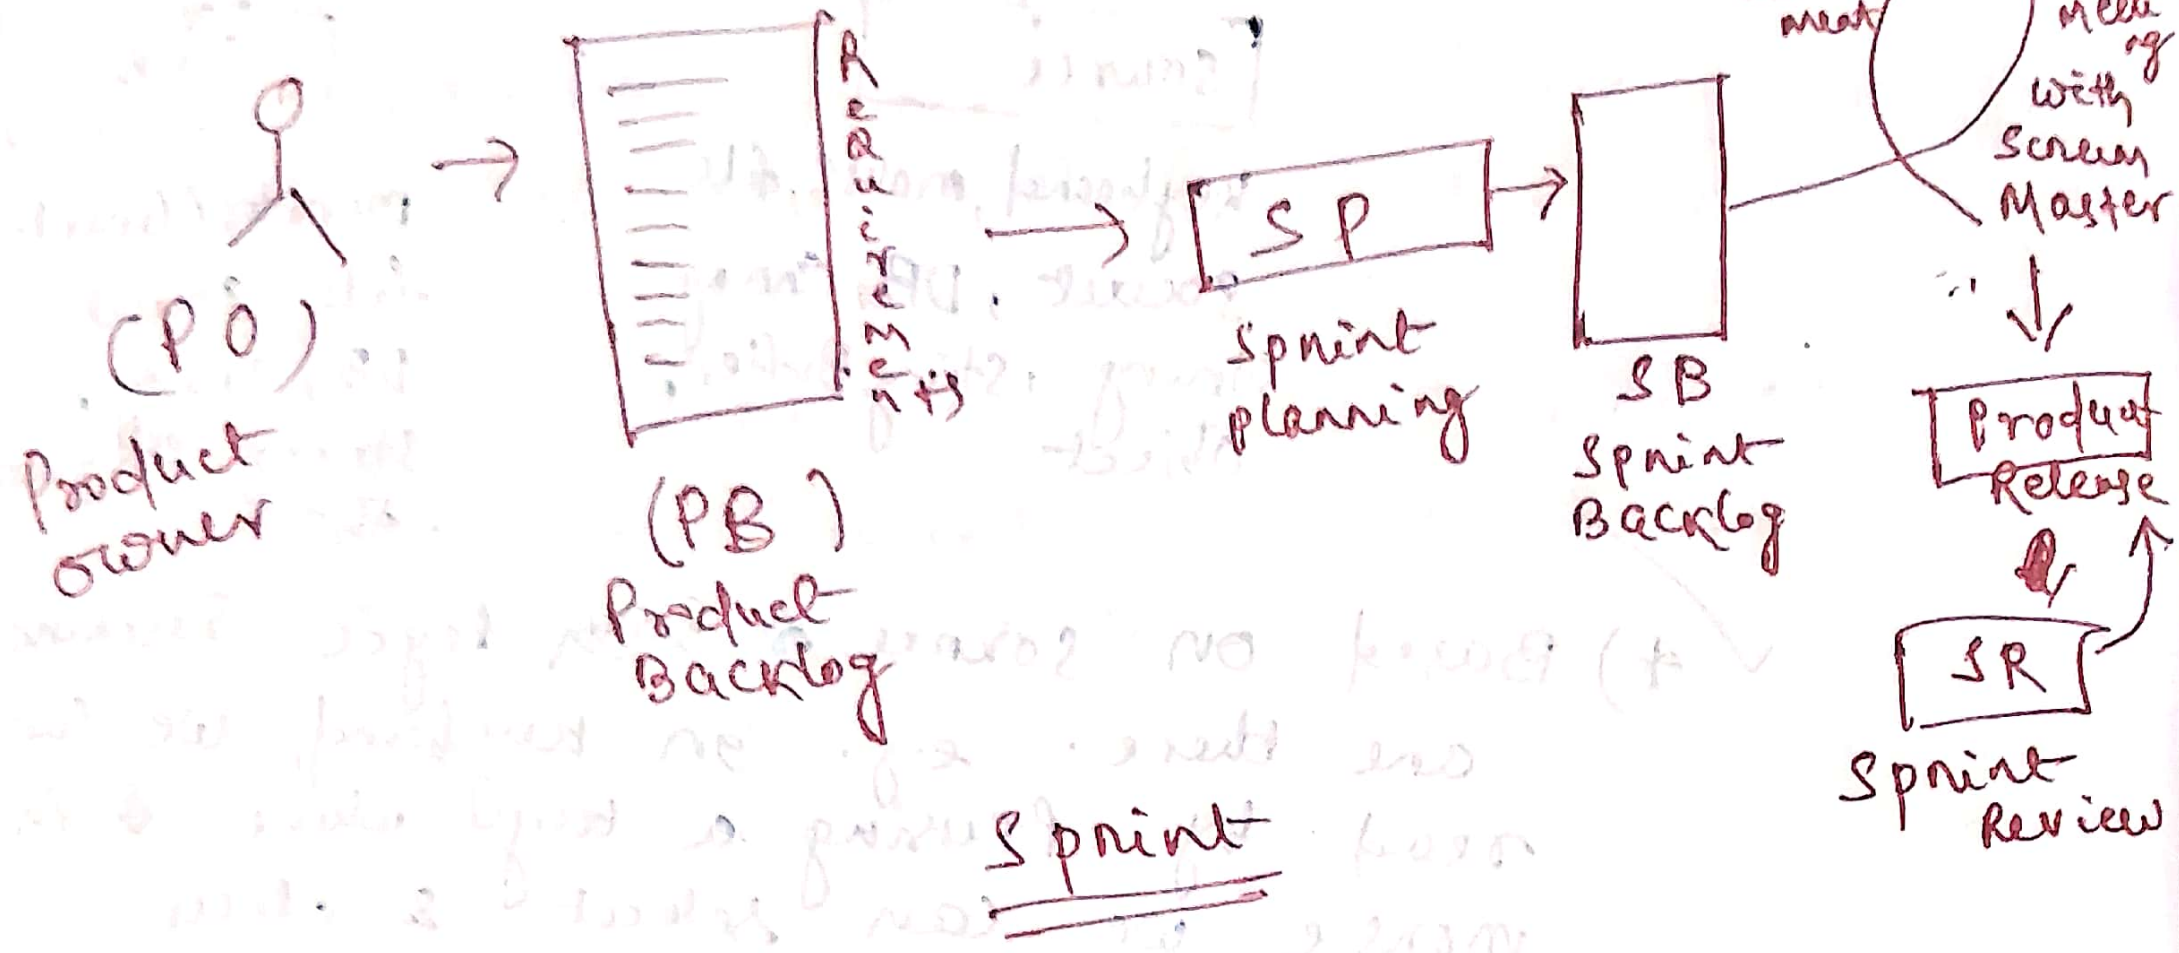 (PO)
Product
owner
Requirements
(PB)
Product
Backlog
SP
Sprint
planning
SB
Sprint
Backlog
with
Scrum
Master
Product
Release
SR
Sprint
Review
Sprint